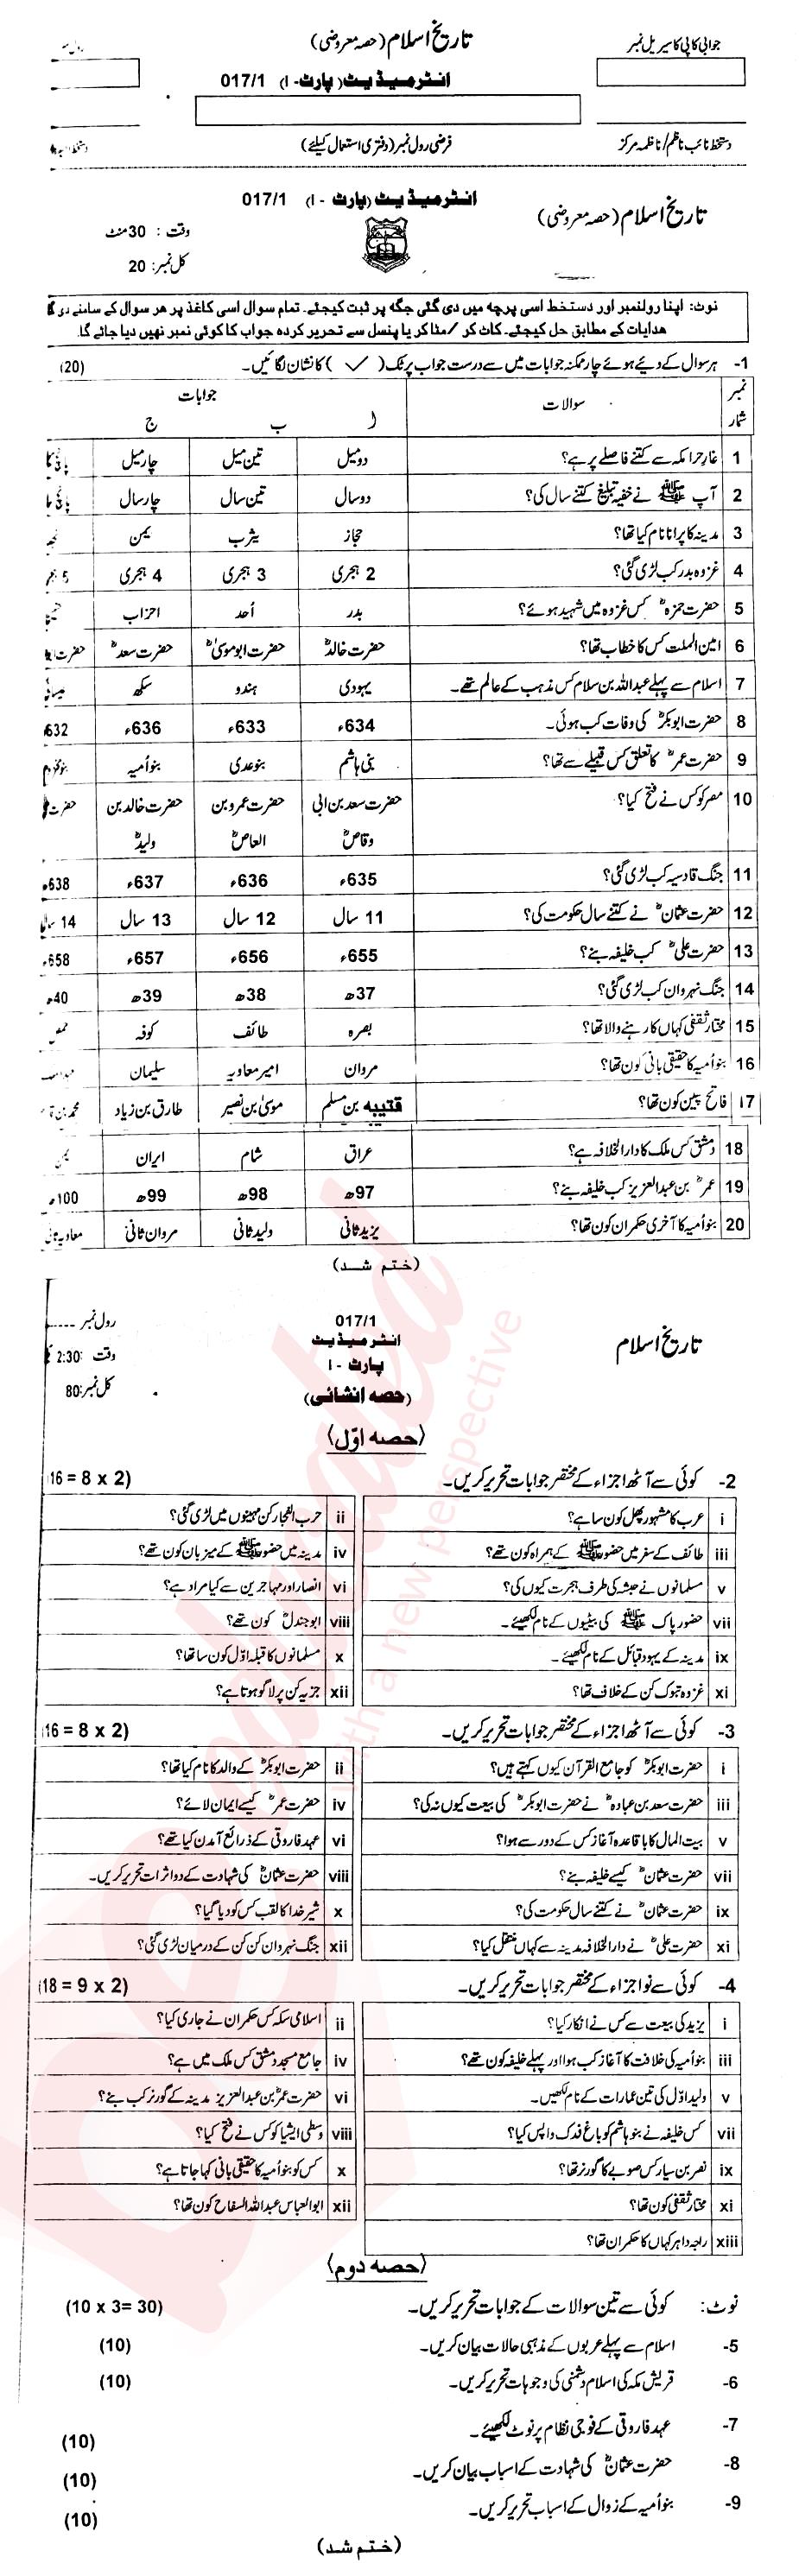 جوابی کاپی کا سیریل نمبر
تاریخ اسلام (حصہ معروضی)
رول نمبر
انٹرمیڈیٹ (پارٹ - I) 017/1
دستخط نائب ناظم / ناظمہ مرکز
فرضی رول نمبر (دفتری استعمال کیلئے)
دستخط
تاریخ اسلام (حصہ معروضی)
انٹرمیڈیٹ (پارٹ - I) 017/1
وقت : 30 منٹ
کل نمبر: 20
نوٹ: اپنا رولنمبر اور دستخط اسی پرچہ میں دی گئی جگہ پر ثبت کیجئے۔ تمام سوال اسی کاغذ پر ھر سوال کے سامنے دی
ھدایات کے مطابق حل کیجئے۔ کاٹ کر / مٹا کر یا پنسل سے تحریر کردہ جواب کا کوئی نمبر نہیں دیا جائے گا۔
1- ہر سوال کے دیئے ہوئے چار ممکنہ جوابات میں سے درست جواب پر ٹک (✓) کا نشان لگائیں۔ (20)
نمبر شمار سوالات جوابات
ا ب ج
1 غارِ حرا مکہ سے کتنے فاصلے پر ہے؟ دو میل تین میل چار میل پانچ
2 آپ ﷺ نے خفیہ تبلیغ کتنے سال کی؟ دو سال تین سال چار سال پانچ
3 مدینہ کا پرانا نام کیا تھا؟ حجاز یثرب یمن
4 غزوہ بدر کب لڑی گئی؟ 2 ہجری 3 ہجری 4 ہجری 5
5 حضرت حمزہؓ کس غزوہ میں شہید ہوئے؟ بدر اُحد احزاب
6 امین الملت کس کا خطاب تھا؟ حضرت خالدؓ حضرت ابو موسیٰؓ حضرت سعدؓ حضرت
7 اسلام سے پہلے عبداللہ بن سلام کس مذہب کے عالم تھے۔ یہودی ہندو سکھ
8 حضرت ابوبکرؓ کی وفات کب ہوئی۔ 634ء 633ء 636ء 632
9 حضرت عمرؓ کا تعلق کس قبیلے سے تھا؟ بنی ہاشم بنو عدی بنو اُمیہ
10 مصر کو کس نے فتح کیا؟ حضرت سعد بن ابی وقاصؓ حضرت عمرو بن العاصؓ حضرت خالد بن ولیدؓ حضرت
11 جنگ قادسیہ کب لڑی گئی؟ 635ء 636ء 637ء 638ء
12 حضرت عثمانؓ نے کتنے سال حکومت کی؟ 11 سال 12 سال 13 سال 14 سال
13 حضرت علیؓ کب خلیفہ بنے؟ 655ء 656ء 657ء 658ء
14 جنگ نہروان کب لڑی گئی؟ 37ھ 38ھ 39ھ 40ھ
15 مختار ثقفی کہاں کا رہنے والا تھا؟ بصرہ طائف کوفہ
16 بنو اُمیہ کا حقیقی بانی کون تھا؟ مروان امیر معاویہ سلیمان
17 فاتح سپین کون تھا؟ قتیبہ بن مسلم موسیٰ بن نصیر طارق بن زیاد محمد بن
18 دمشق کس ملک کا دارالخلافہ ہے؟ عراق شام ایران یمن
19 عمرؓ بن عبدالعزیز کب خلیفہ بنے؟ 97ھ 98ھ 99ھ 100ھ
20 بنو اُمیہ کا آخری حکمران کون تھا؟ یزید ثانی ولید ثانی مروان ثانی معاویہ ثانی
(ختم شد)
تاریخ اسلام
017/1
انٹرمیڈیٹ
پارٹ - I
(حصہ انشائی)
رول نمبر -----
وقت :2:30
کل نمبر: 80
(حصہ اوّل)
2- کوئی سے آٹھ اجزاء کے مختصر جوابات تحریر کریں۔ (2 x 8 = 16
i عرب کا مشہور پھل کون سا ہے؟
ii حرب الفجار کن مہینوں میں لڑی گئی؟
iii طائف کے سفر میں حضور ﷺ کے ہمراہ کون تھے؟
iv مدینہ میں حضور ﷺ کے میزبان کون تھے؟
v مسلمانوں نے حبشہ کی طرف ہجرت کیوں کی؟
vi انصار اور مہاجرین سے کیا مراد ہے؟
vii حضور پاک ﷺ کی بیٹیوں کے نام لکھیئے۔
viii ابو جندلؓ کون تھے؟
ix مدینہ کے یہود قبائل کے نام لکھیئے۔
x مسلمانوں کا قبلہ اوّل کون سا تھا؟
xi غزوہ تبوک کن کے خلاف تھا؟
xii جزیہ کن پر لاگو ہوتا ہے؟
3- کوئی سے آٹھ اجزاء کے مختصر جوابات تحریر کریں۔ (2 x 8 = 16
i حضرت ابوبکرؓ کو جامع القرآن کیوں کہتے ہیں؟
ii حضرت ابوبکرؓ کے والد کا نام کیا تھا؟
iii حضرت سعد بن عبادہؓ نے حضرت ابوبکرؓ کی بیعت کیوں نہ کی؟
iv حضرت عمرؓ کیسے ایمان لائے؟
v بیت المال کا باقاعدہ آغاز کس کے دور سے ہوا؟
vi عہد فاروقی کے ذرائع آمدن کیا تھے؟
vii حضرت عثمانؓ کیسے خلیفہ بنے؟
viii حضرت عثمانؓ کی شہادت کے دو اثرات تحریر کریں۔
ix حضرت عثمانؓ نے کتنے سال حکومت کی؟
x شیر خدا کا لقب کس کو دیا گیا؟
xi حضرت علیؓ نے دارالخلافہ مدینہ سے کہاں منتقل کیا؟
xii جنگ نہروان کن کن کے درمیان لڑی گئی؟
4- کوئی سے نو اجزاء کے مختصر جوابات تحریر کریں۔ (2 x 9 = 18)
i یزید کی بیعت سے کس نے انکار کیا؟
ii اسلامی سکہ کس حکمران نے جاری کیا؟
iii بنو اُمیہ کی خلافت کا آغاز کب ہوا اور پہلے خلیفہ کون تھے؟
iv جامع مسجد دمشق کس ملک میں ہے؟
v ولید اوّل کی تین عمارات کے نام لکھیں۔
vi حضرت عمرؓ بن عبدالعزیز مدینہ کے گورنر کب بنے؟
vii کس خلیفہ نے بنو ہاشم کو باغ فدک واپس کیا؟
viii وسطی ایشیا کو کس نے فتح کیا؟
ix نصر بن سیار کس صوبے کا گورنر تھا؟
x کس کو بنو اُمیہ کا حقیقی بانی کہا جاتا ہے؟
xi مختار ثقفی کون تھا؟
xii ابو العباس عبداللہ السفاح کون تھا؟
xiii راجہ داہر کہاں کا حکمران تھا؟
(حصہ دوم)
نوٹ: کوئی سے تین سوالات کے جوابات تحریر کریں۔ (10 x 3= 30)
5- اسلام سے پہلے عربوں کے مذہبی حالات بیان کریں۔ (10)
6- قریش مکہ کی اسلام دشمنی کی وجوہات تحریر کریں۔ (10)
7- عہد فاروقی کے فوجی نظام پر نوٹ لکھیئے۔ (10)
8- حضرت عثمانؓ کی شہادت کے اسباب بیان کریں۔ (10)
9- بنو اُمیہ کے زوال کے اسباب تحریر کریں۔ (10)
(ختم شد)
with a new perspective